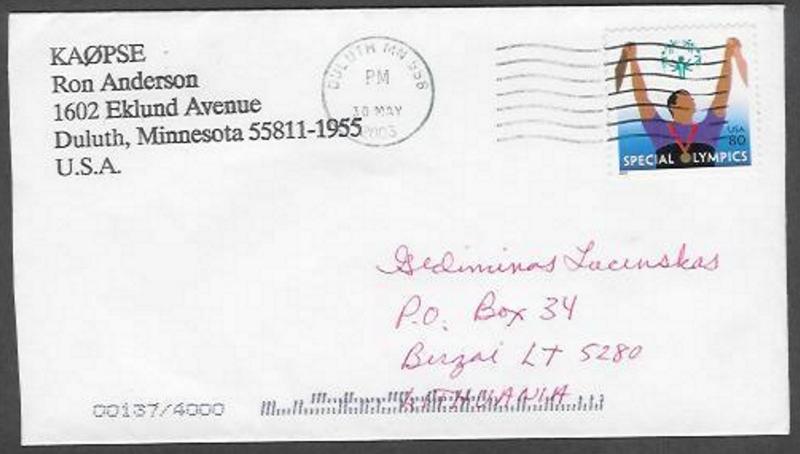 KAØPSE
Ron Anderson
1602 Eklund Avenue
Duluth, Minnesota 55811-1955
U.S.A.
DULUTH MN 558
PM
30 MAY
2003
USA
80
SPECIAL OLYMPICS
Gediminas Lucinskas
P.O. Box 34
Berzai LT 5280
LITHUANIA
00137/4000